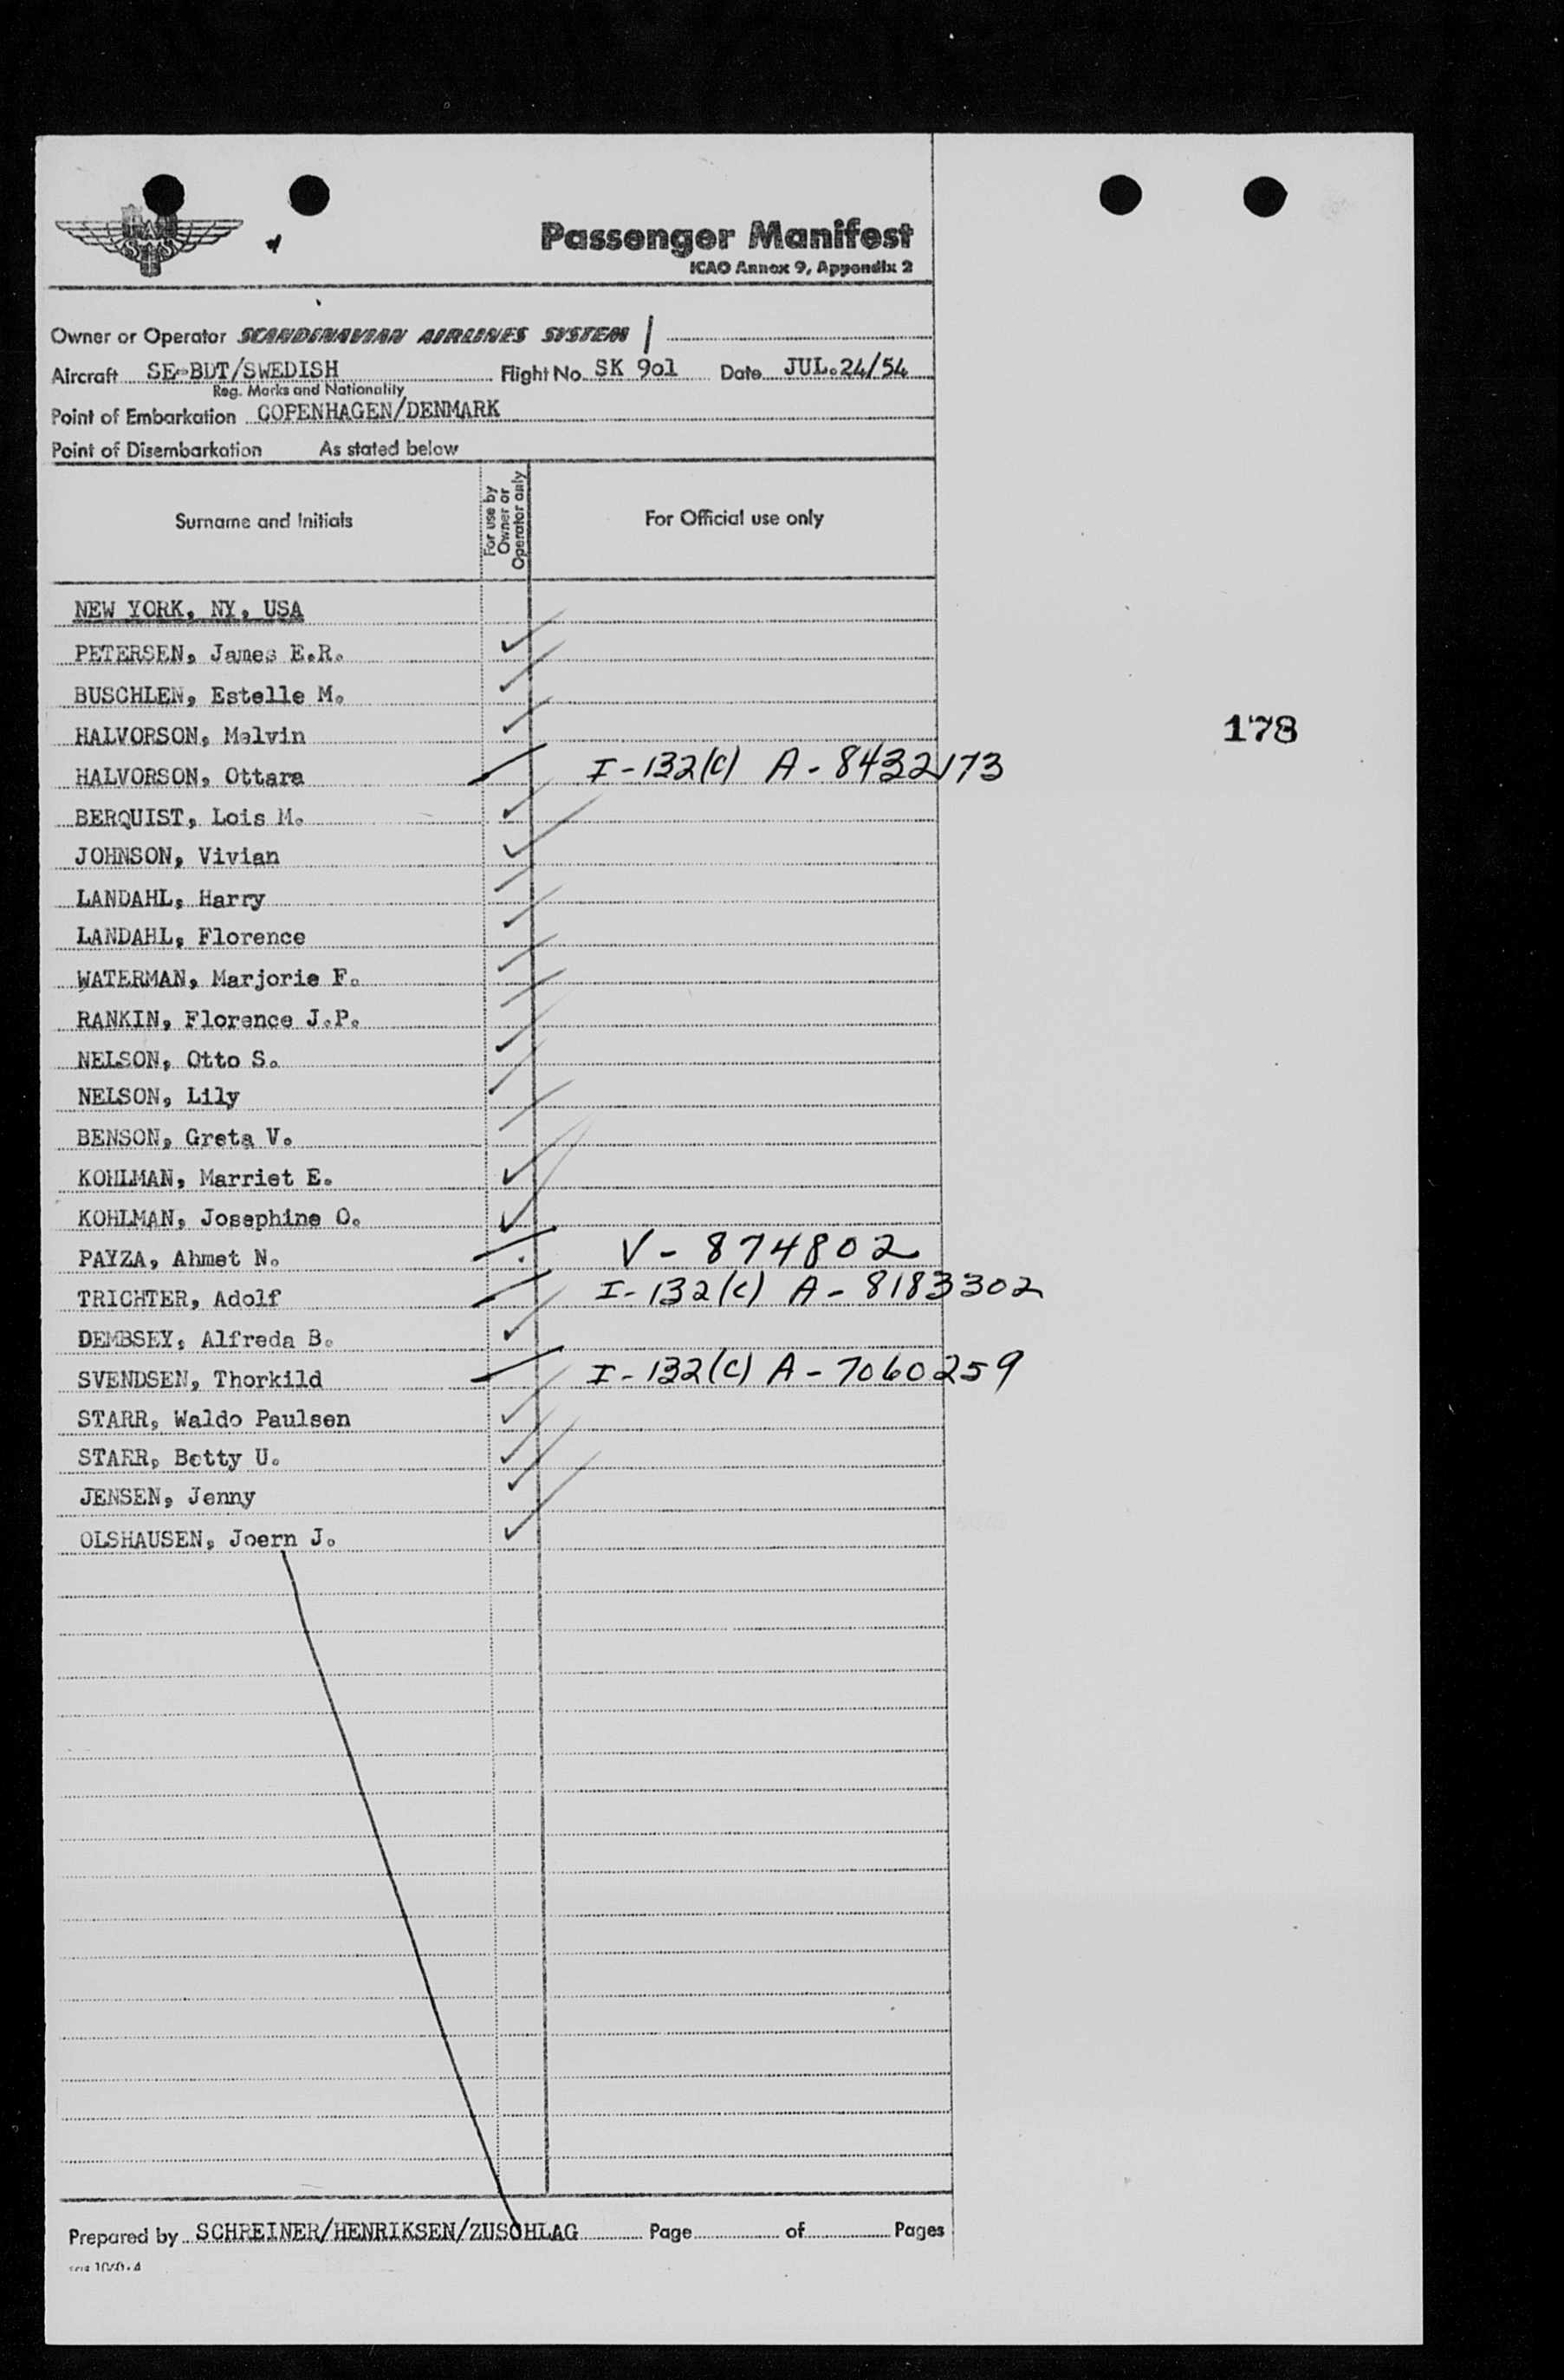 SAS
Passenger Manifest
ICAO Annex 9, Appendix 2
Owner or Operator SCANDINAVIAN AIRLINES SYSTEM /
Aircraft SE-BDT/SWEDISH Flight No. SK 901 Date JUL.24/54
Reg. Marks and Nationality
Point of Embarkation COPENHAGEN/DENMARK
Point of Disembarkation As stated below
Surname and Initials For use by Owner or Operator only For Official use only
NEW YORK, NY, USA
PETERSEN, James E.R. ✓
BUSCHLEN, Estelle M. ✓
HALVORSON, Melvin ✓
178
HALVORSON, Ottara I-132(c) A-8432173
BERQUIST, Lois M. ✓
JOHNSON, Vivian ✓
LANDAHL, Harry ✓
LANDAHL, Florence ✓
WATERMAN, Marjorie F. ✓
RANKIN, Florence J.P. ✓
NELSON, Otto S. ✓
NELSON, Lily ✓
BENSON, Greta V. ✓
KOHLMAN, Marriet E. ✓
KOHLMAN, Josephine O. ✓
PAYZA, Ahmet N. V-874802
TRICHTER, Adolf I-132(c) A-8183302
DEMBSEY, Alfreda B. ✓
SVENDSEN, Thorkild I-132(c) A-7060259
STARR, Waldo Paulsen ✓
STARR, Betty U. ✓
JENSEN, Jenny ✓
OLSHAUSEN, Joern J. ✓
Prepared by SCHREINER/HENRIKSEN/ZUSCHLAG Page of Pages